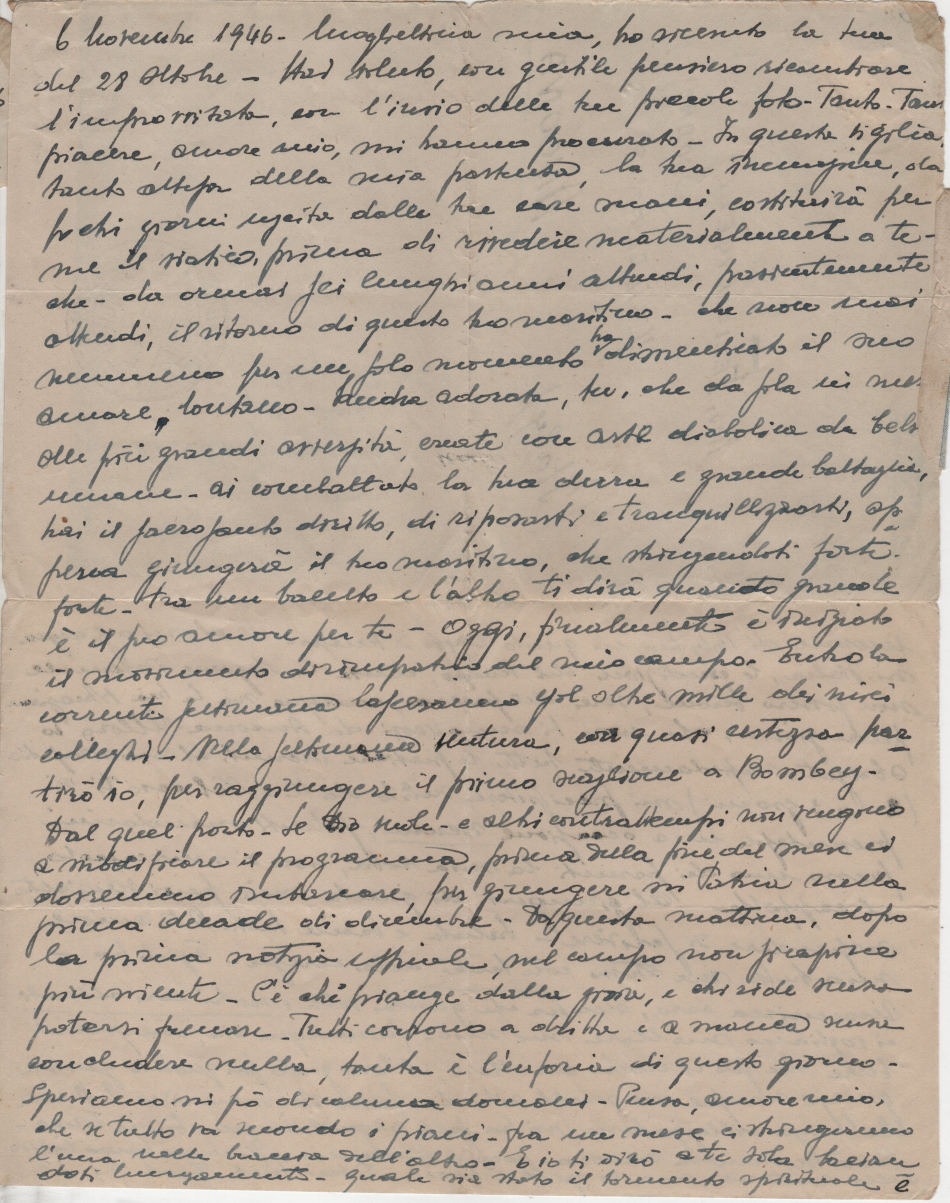 6 novembre 1946 - Mogliettina mia, ho ricevuto la tua
del 28 Ottobre - Hai voluto, con gentile pensiero ricambiare
l'improvvisata, con l'invio delle tue piccole foto - Tanto - Tanto
piacere, amore mio, mi hanno procurato - In questa vigilia,
tanto attesa della mia partenza, la tua immagine, da
pochi giorni uscita dalle tue care mani, costituirà per
me il viatico, prima di rivedere materialmente a te -
che - da ormai sei lunghi anni attendi, pazientemente
attendi, il ritorno di questo tuo maritino - che non mai
nemmeno per un solo momento ha dimenticato il suo
amore, lontano - Andra adorata, tu, che da sola in mez
alle più grandi avversità, create con arte diabolica da belve
umane - ai combattuto la tua dura e grande battaglia,
hai il sacrosanto diritto, di riposarti e tranquillizzarti, ap-
pena giungerà il tuo maritino, che stringendoti forte -
forte - tra un bacetto e l'altro ti dirà quanto grande
è il suo amore per te - Oggi, finalmente è iniziato
il movimento di rimpatrio del mio campo. Entro la
corrente settimana lasceranno gol oltre mille dei miei
colleghi - Nella settimana ventura, con quasi certezza par-
tirò io, per raggiungere il primo scaglione a Bombey -
Dal quel porto - se Dio vuole - e altri contrattempi non vengono
a modificare il programma, prima della fine del mese ci
dovremmo imbarcare, per giungere in Patria nella
prima decade di dicembre - Da questa mattina, dopo
la prima notizia ufficiale, nel campo non si capisce
più niente - C'è chi piange dalla gioia, e chi ride senza
potersi frenare - Tutti corrono a dritta e a manca senza
concludere nulla, tanta è l'euforia di questo giorno -
Speriamo in pò di calma domani - Pensa, amore mio,
che se tutto va secondo i piani - fra un mese ci stringeremo
l'una nelle braccia dell'altro - E io ti dirò a te sola bacian
doti lungamente - quale sia stato il tormento spirituale è